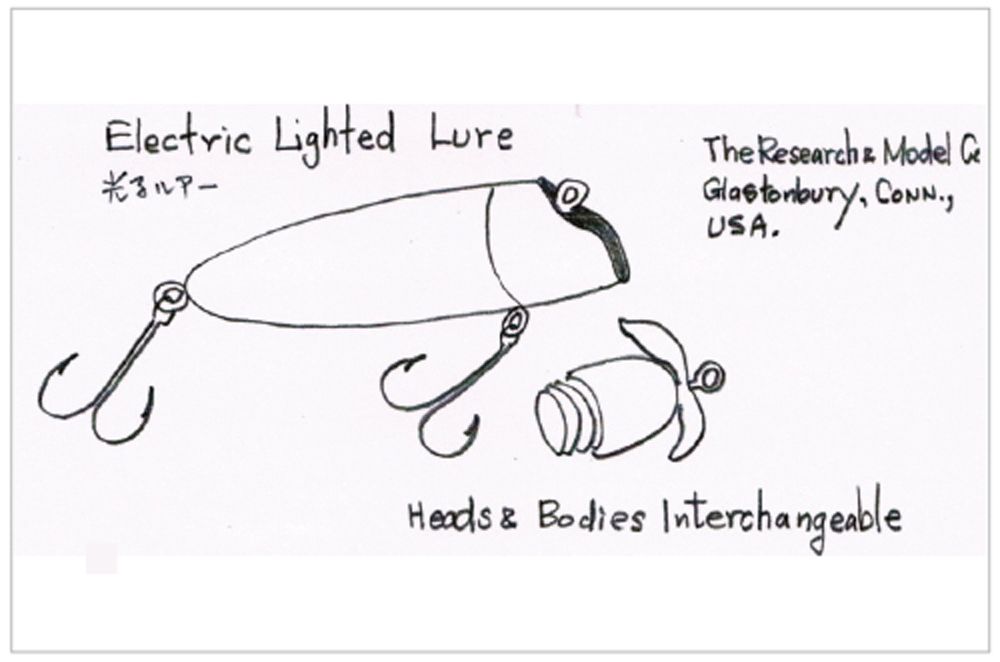 Electric Lighted Lure
光るルアー
The Research & Model Co
Glastonbury, CONN.,
USA.
Heads & Bodies Interchangeable